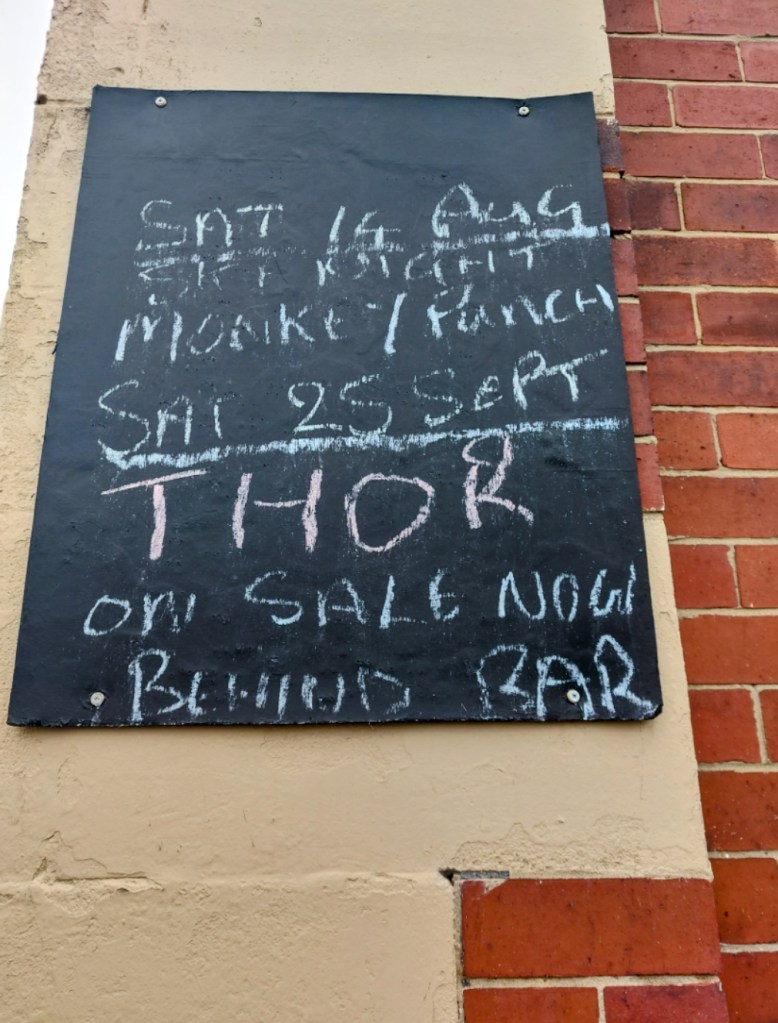 SAT 16 AUG
SKA NIGHT
MONKEY PUNCH
SAT 25 SEPT
THOR
ON SALE NOW
BEHIND BAR